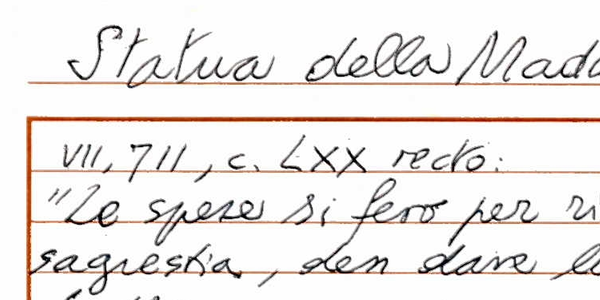 Statua della Mad
VII, 711, c. LXX recto:
"Le spese si fero per ri
sagrestia, den dare l